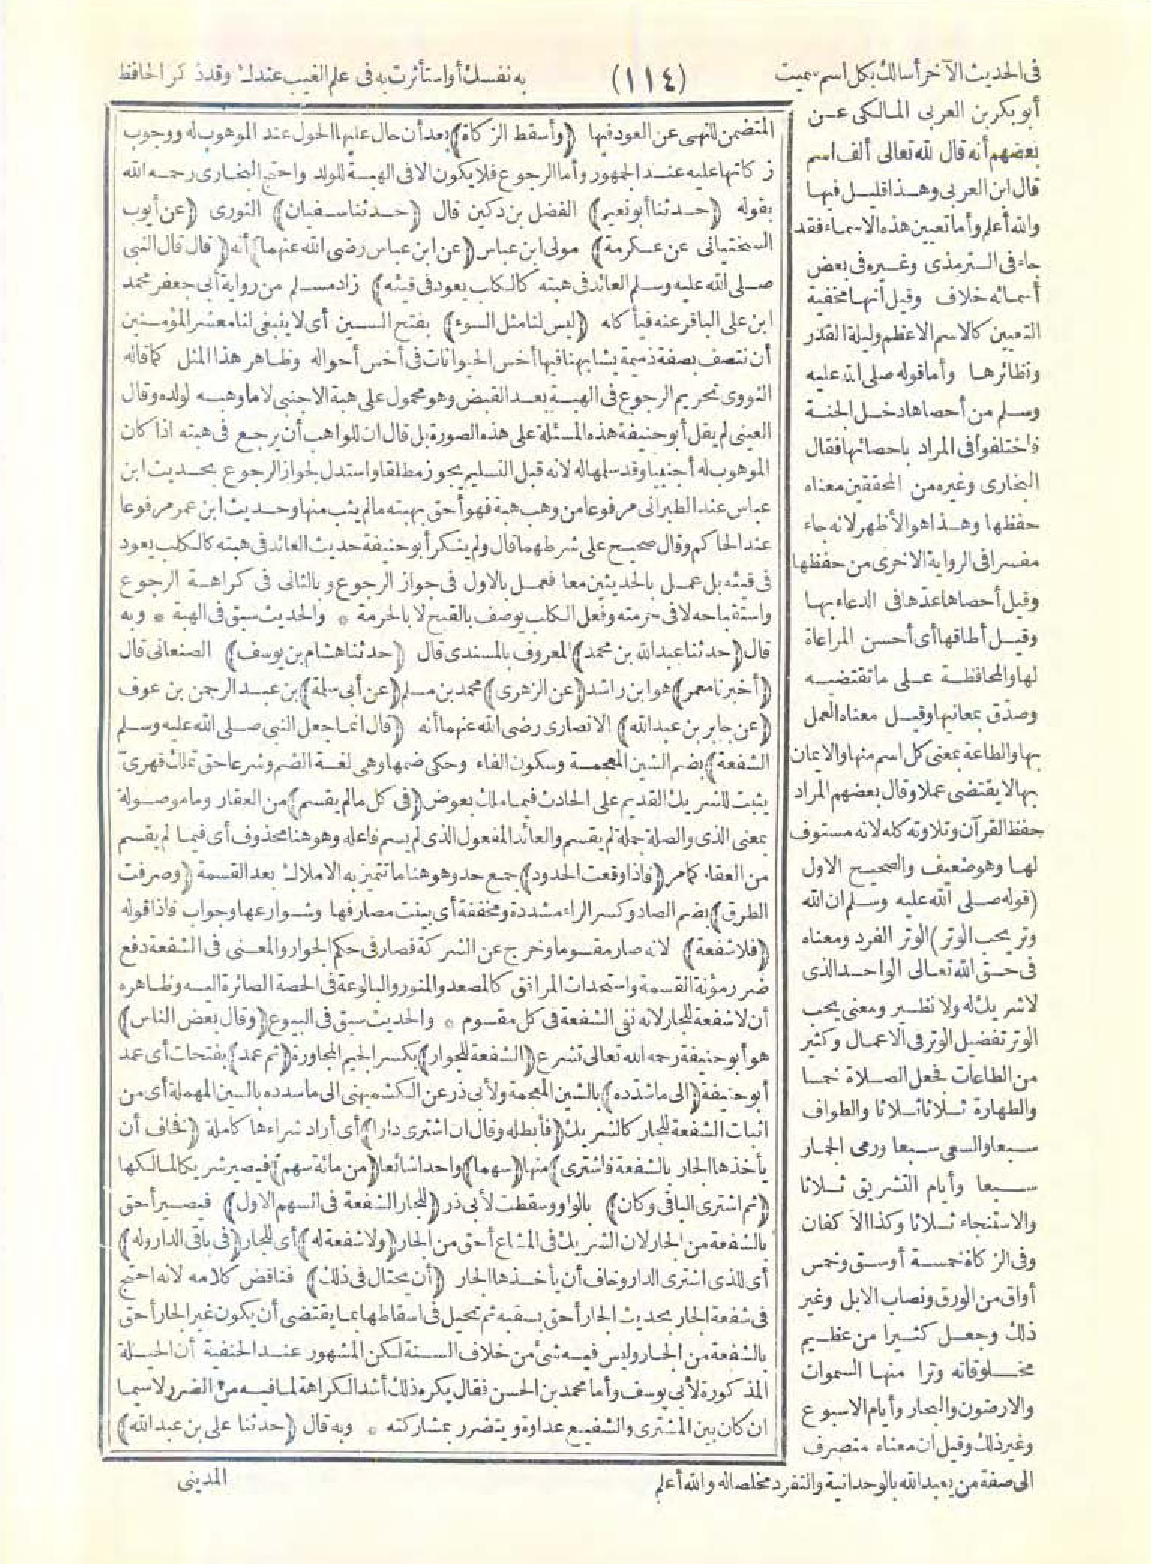 فى الحديث الآخر أسألك بكل اسم سميت به نفسك أو استأثرت به فى علم الغيب عندك وقد ذكر الحافظ
(١١٤)
أبو بكر بن العربى المالكى عن
بعضهم أنه قال لله تعالى ألف اسم
قال ابن العربى وهذا قليل فيها
والله أعلم وأما تعيين هذه الاسماء فقد
جاء فى الترمذى وغيره فى بعض
أسمائه خلاف وقيل أنها مخفية
التعيين كالاسم الاعظم وليلة القدر
ونظائرها وأما قوله صلى الله عليه
وسلم من أحصاها دخل الجنة
فاختلفوا فى المراد باحصائها فقال
البخارى وغيره من المحققين معناه
حفظها وهذا هو الأظهر لانه جاء
مفسرا فى الرواية الاخرى من حفظها
وقيل أحصاها عدها فى الدعاء بها
وقيل أطاقها أى أحسن المراعاة
لها والمحافظة على ما تقتضيه
وصدق بمعانيها وقيل معناه العمل
بها والطاعة بمعنى كل اسم منها والايمان
بها لا يقتضى عملا وقال بعضهم المراد
حفظ القرآن وتلاوته كله لانه مستوف
لها وهو ضعيف والصحيح الاول
(قوله صلى الله عليه وسلم ان الله
وتر يحب الوتر) الوتر الفرد ومعناه
فى حق الله تعالى الواحد الذى
لا شريك له ولا نظير ومعنى يحب
الوتر تفضيل الوتر فى الاعمال وكثير
من الطاعات فجعل الصلاة خمسا
والطهارة ثلاثا ثلاثا والطواف
سبعا والسعى سبعا ورمى الجمار
سبعا وأيام التشريق ثلاثا
والاستنجاء ثلاثا وكذا الاكفان
وفى الزكاة خمسة أوسق وخمس
أواق من الورق ونصاب الابل وغير
ذلك وجعل كثيرا من عظيم
مخلوقاته وترا منها السموات
والارضون والبحار وأيام الاسبوع
وغير ذلك وقيل ان معناه منصرف
الى صفة من يعبد الله بالوحدانية والتفرد مخلصا له والله أعلم
المتضمن للنهى عن العود فيها (وأسقط الزكاة) بعد أن حال عليها الحول عند الموهوب له ووجوب
زكاتها عليه عند الجمهور وأما الرجوع فلا يكون الا فى الهبة للولد واحتج البخارى رحمه الله
بقوله (حدثنا أبو نعيم) الفضل بن دكين قال (حدثنا سفيان) الثورى (عن أيوب
السختيانى عن عكرمة) مولى ابن عباس (عن ابن عباس رضى الله عنهما) أنه (قال قال النبى
صلى الله عليه وسلم العائد فى هبته كالكلب يعود فى قيئه) زاد مسلم من رواية أبى جعفر محمد
ابن على الباقر عنه فيأكله (ليس لنا مثل السوء) بفتح السين أى لا ينبغى لنا معشر المؤمنين
أن نتصف بصفة ذميمة يشابهنا فيها أخس الحيوانات فى أخس أحواله وظاهر هذا المثل كما قاله
النووى تحريم الرجوع فى الهبة بعد القبض وهو محمول على هبة الاجنبى لا ما وهبه لولده وقال
العينى لم يقل أبو حنيفة هذه المسئلة على هذه الصورة بل قال ان للواهب أن يرجع فى هبته اذا كان
الموهوب له أجنبيا وقد سلمها له لانه قبل التسليم يجوز مطلقا واستدل لجواز الرجوع بحديث ابن
عباس عند الطبرانى مرفوعا من وهب هبة فهو أحق بهبته ما لم يثب منها وحديث ابن عمر مرفوعا
عند الحاكم وقال صحيح على شرطهما قال ولم ينكر أبو حنيفة حديث العائد فى هبته كالكلب يعود
فى قيئه بل عمل بالحديثين معا فعمل بالاول فى جواز الرجوع وبالثانى فى كراهة الرجوع
واستقباحه لا فى حرمته وفعل الكلب يوصف بالقبح لا بالحرمة * والحديث سبق فى الهبة * وبه
قال (حدثنا عبد الله بن محمد) المعروف بالمسندى قال (حدثنا هشام بن يوسف) الصنعانى قال
(أخبرنا معمر) هو ابن راشد (عن الزهرى) محمد بن مسلم (عن أبى سلمة) بن عبد الرحمن بن عوف
(عن جابر بن عبد الله) الانصارى رضى الله عنهما أنه (قال انما جعل النبى صلى الله عليه وسلم
الشفعة) بضم الشين المعجمة وسكون الفاء وحكى ضمها وهى لغة الضم وشرعا حق تملك قهرى
يثبت للشريك القديم على الحادث فيما ملك بعوض (فى كل ما لم يقسم) من العقار وما موصولة
بمعنى الذى والصلة جملة لم يقسم والعائد المفعول الذى لم يسم فاعله وهو هنا محذوف أى فيما لم يقسم
من العقار كما مر (فاذا وقعت الحدود) جمع حد وهو هنا ما تتميز به الاملاك بعد القسمة (وصرفت
الطرق) بضم الصاد وكسر الراء مشددة ومخففة أى بينت مصارفها وشوارعها وجواب فاذا قوله
(فلا شفعة) لانه صار مقسوما وخرج عن الشركة فصار فى حكم الجوار والمعنى فى الشفعة دفع
ضرر مؤنة القسمة واستحداث المرافق كالمصعد والمنور والبالوعة فى الحصة الصائرة اليه وظاهره
أن لا شفعة للجار لانه نفى الشفعة فى كل مقسوم * والحديث سبق فى البيوع (وقال بعض الناس)
هو أبو حنيفة رحمه الله تعالى تشرع (الشفعة للجوار) بكسر الجيم المجاورة (ثم عمد) بفتحات أى عمد
أبو حنيفة (الى ما شدده) بالشين المعجمة ولأبى ذر عن الكشميهنى الى ما سدده بالسين المهملة أى من
اثبات الشفعة للجار كالشريك (فأبطله وقال ان اشترى دارا) أى أراد شراءها كاملة (فخاف أن
يأخذها الجار بالشفعة فاشترى) منها (سهما) واحدا شائعا (من مائة سهم) فيصير شريكا لمالكها
(ثم اشترى الباقى وكان) بالواو وسقطت لأبى ذر (للجار الشفعة فى السهم الاول) فيصير أحق
بالشفعة من الجار لان الشريك فى المشاع أحق من الجار (ولا شفعة له) أى للجار (فى باقى الدار وله)
أى للذى اشترى الدار وخاف أن يأخذها الجار (أن يحتال فى ذلك) فناقض كلامه لانه احتج
فى شفعة الجار بحديث الجار أحق بسقبه ثم تحيل فى اسقاطها بما يقتضى أن يكون غير الجار أحق
بالشفعة من الجار وليس فيه شئ من خلاف السنة لكن المشهور عند الحنفية أن الحيلة
المذكورة لأبى يوسف وأما محمد بن الحسن فقال يكره ذلك أشد الكراهة لما فيه من الضرر لاسيما
ان كان بين المشترى والشفيع عداوة ويتضرر بمشاركته * وبه قال (حدثنا على بن عبد الله)
المدينى